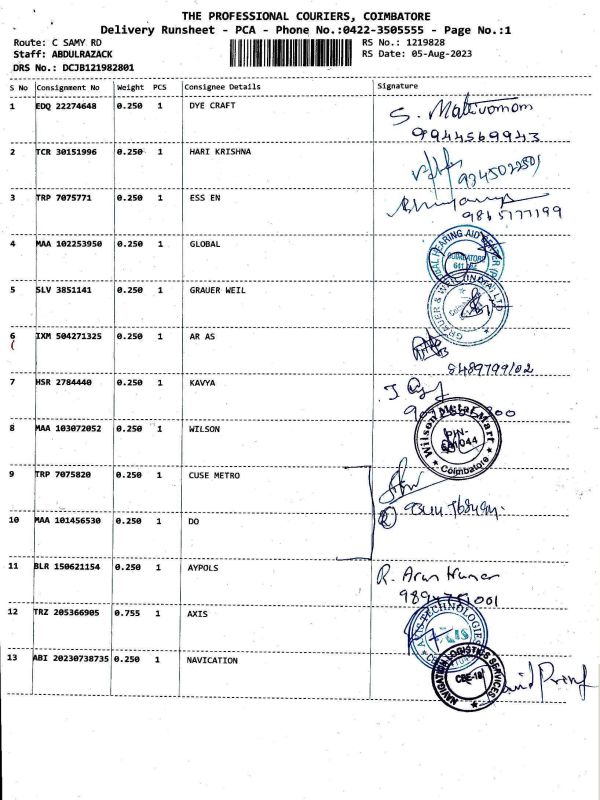 THE PROFESSIONAL COURIERS, COIMBATORE
Delivery Runsheet - PCA - Phone No.:0422-3505555 - Page No.:1
Route: C SAMY RD RS No.: 1219828
Staff: ABDULRAZACK RS Date: 05-Aug-2023
DRS No.: DCJB121982801
S No Consignment No Weight PCS Consignee Details Signature
1 EDQ 22274648 0.250 1 DYE CRAFT
S.
9944569943
2 TCR 30151996 0.250 1 HARI KRISHNA
3 TRP 7075771 0.250 1 ESS EN
9865177199
4 MAA 102253950 0.250 1 GLOBAL
HEARING AID CENTER
COIMBATORE
5 SLV 3851141 0.250 1 GRAUER WEIL
GRAUER & WEIL (INDIA) LTD
6 IXM 504271325 0.250 1 AR AS
8489799102
7 HSR 2784440 0.250 1 KAVYA
8 MAA 103072052 0.250 1 WILSON
Wilson Metal Mart
PIN-
641044
Coimbatore
9 TRP 7075820 0.250 1 CUSE METRO
10 MAA 101456530 0.250 1 DO
11 BLR 150621154 0.250 1 AYPOLS
R. Arun Kumar
12 TRZ 205366905 0.755 1 AXIS
AXIS TECHNOLOGIES
AXIS
13 ABI 20230738735 0.250 1 NAVICATION
NAVIGATION LOGISTICS SERVICES
CBE-18